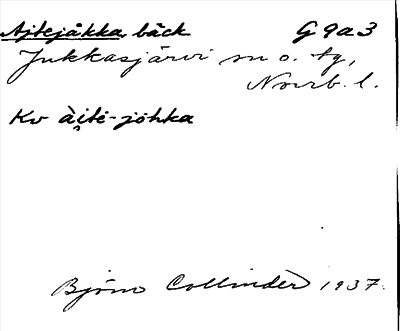 Ajtejåkka bäck G9a3
Jukkasjärvi sn o. tg,
Norrb. l.
Kv ài̯tē-jòhka
Björn Collinder 1937.